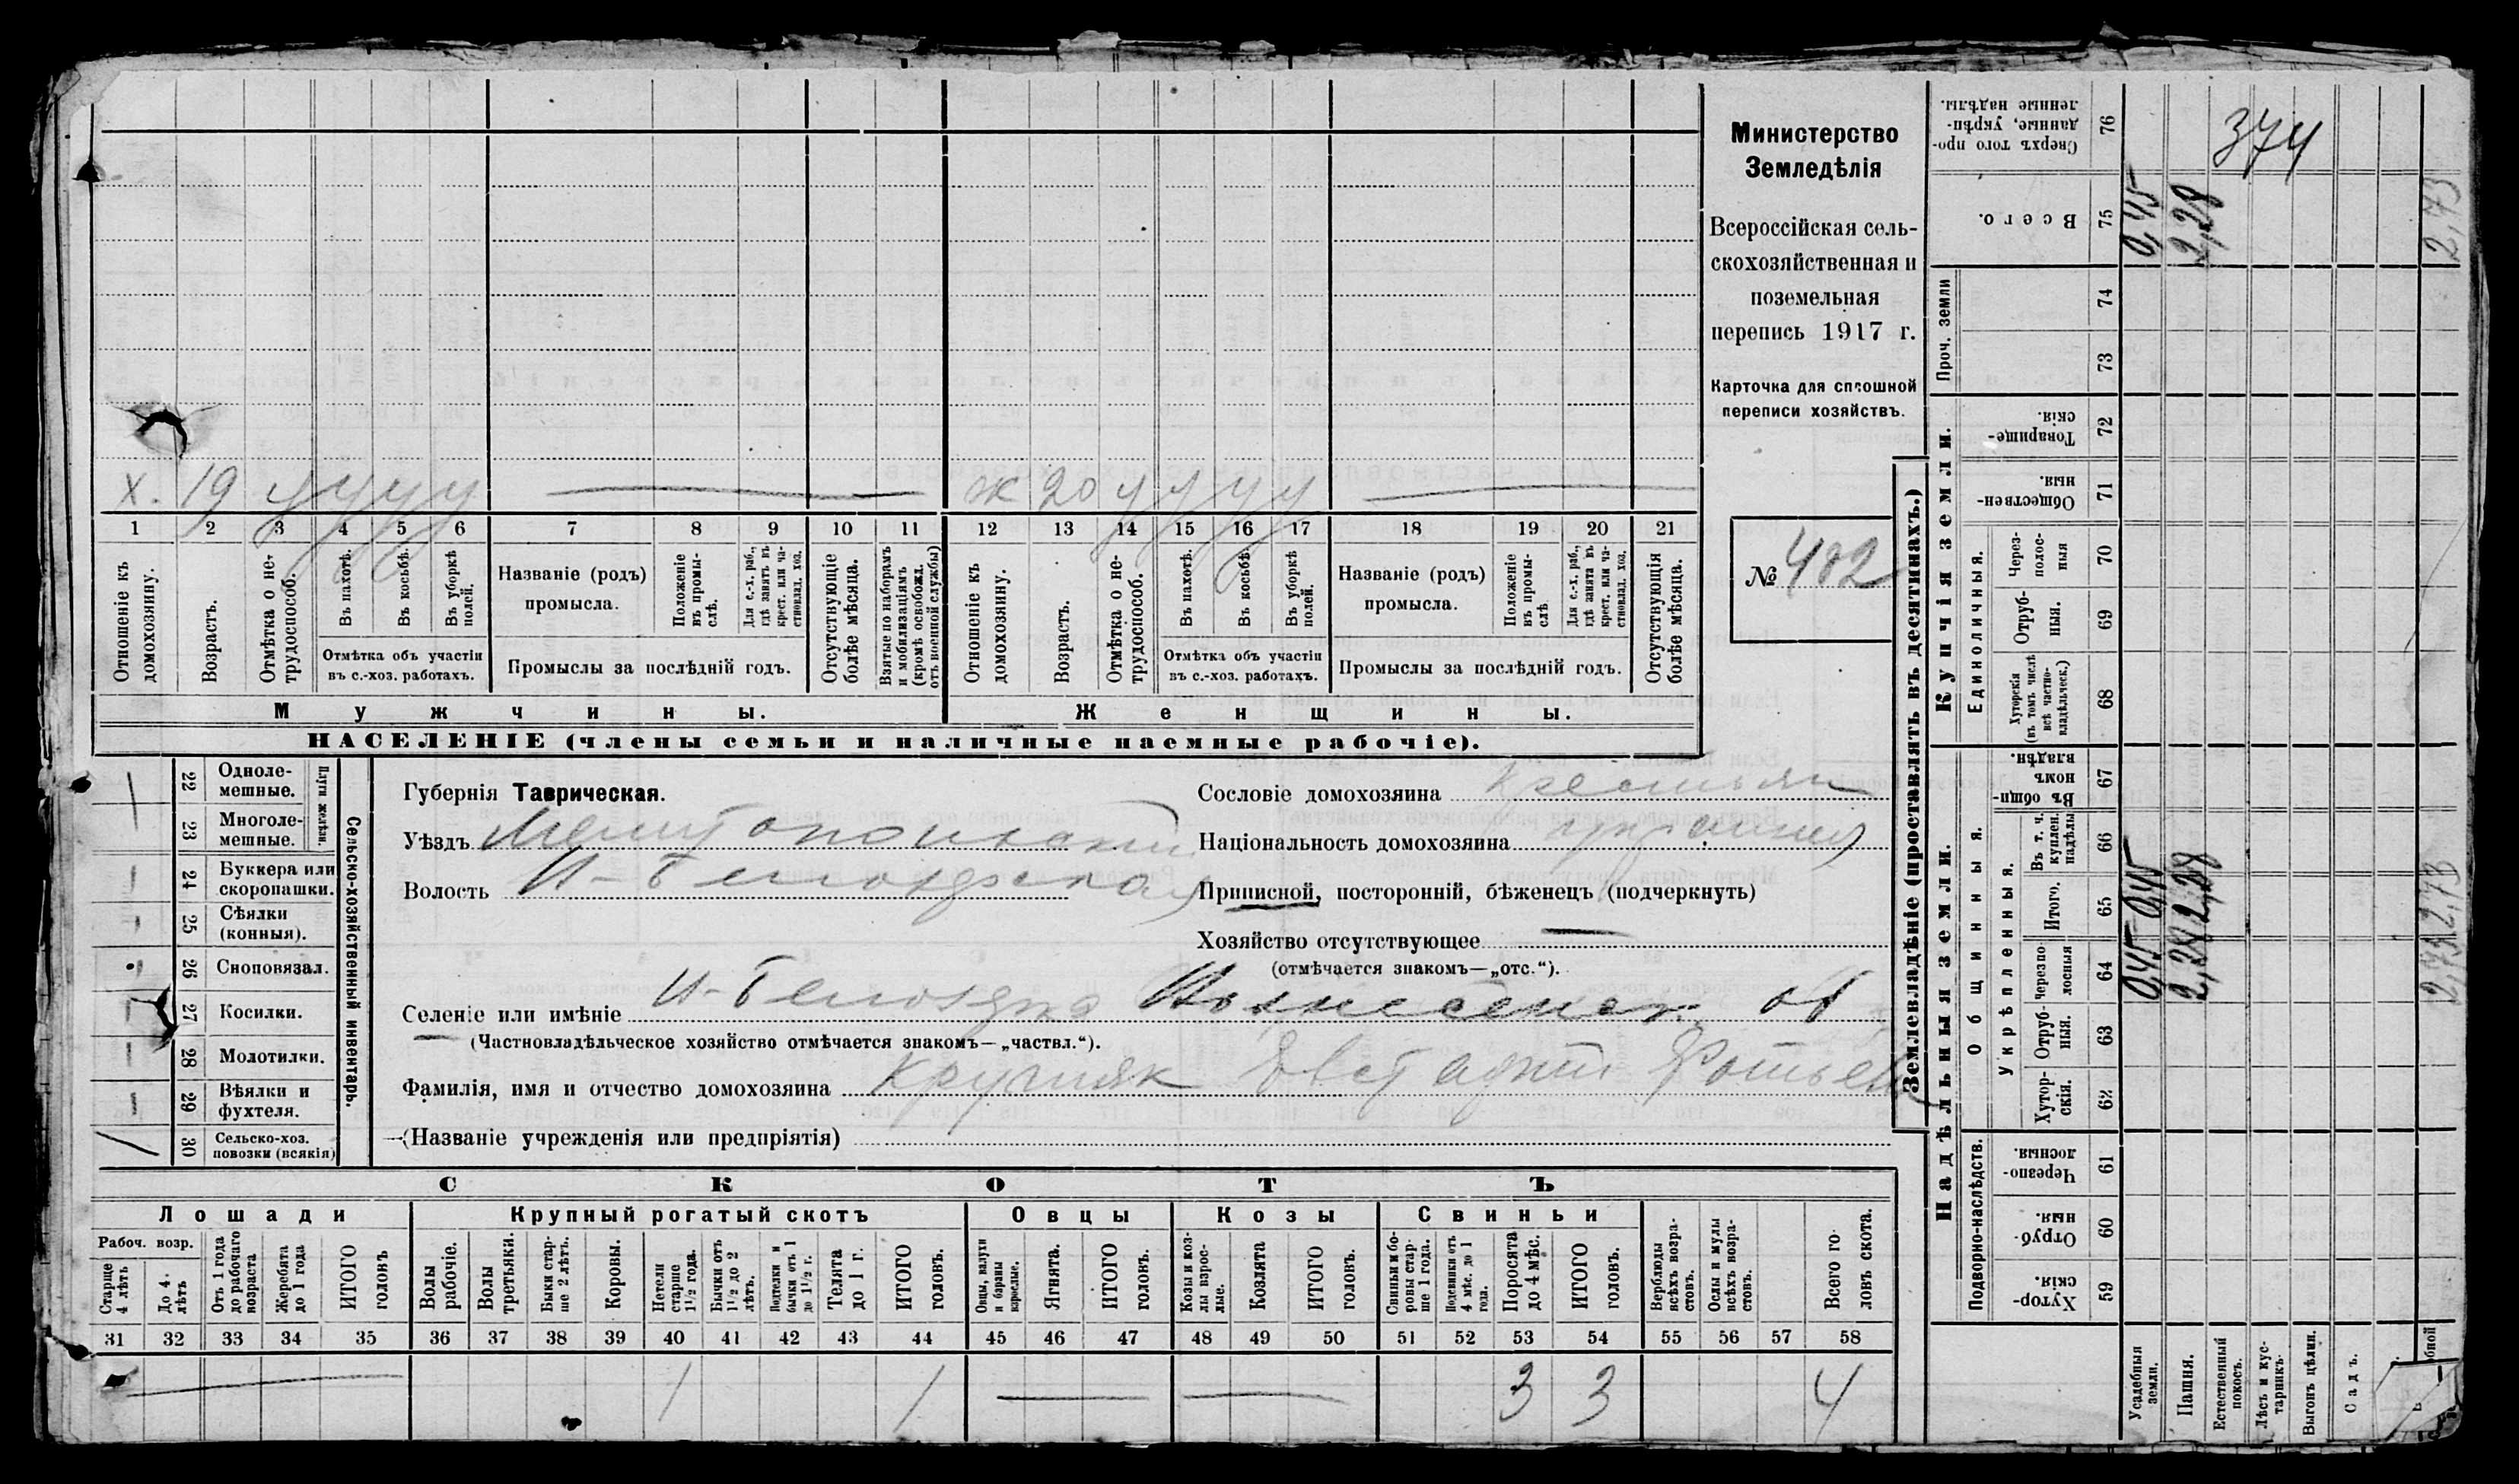 Министерство
Земледѣлія
Всероссійская сель-
скохозяйственная и
поземельная
перепись 1917 г.
Карточка для сплошной
переписи хозяйствъ.
№ 402
Х. 19 у у у у — ж 20 у у у у —
1 2 3 4 5 6 7 8 9 10 11 12 13 14 15 16 17 18 19 20 21
Отношеніе къ домохозяину.
Возрастъ.
Отмѣтка о не-трудоспособ.
Въ пахотѣ.
Въ косьбѣ.
Въ уборкѣ полей.
Отмѣтка объ участіи
въ с.-хоз. работахъ.
Названіе (родъ)
промысла.
Положеніе въ промы-слѣ.
Для с.-х. раб., гдѣ занятъ въ крест. или ча-стновлад. хоз.
Промыслы за послѣдній годъ.
Отсутствующіе болѣе мѣсяца.
Взятые по наборамъ и мобилизаціямъ (кромѣ освобожд. отъ военной службы)
Отношеніе къ домохозяину.
Возрастъ.
Отмѣтка о не-трудоспособ.
Въ пахотѣ.
Въ косьбѣ.
Въ уборкѣ полей.
Отмѣтка объ участіи
въ с.-хоз. работахъ.
Названіе (родъ)
промысла.
Положеніе въ промы-слѣ.
Для с.-х. раб., гдѣ занята въ крест. или ча-стновлад. хоз.
Промыслы за послѣдній годъ.
Отсутствующія болѣе мѣсяца.
Мужчины.
Женщины.
НАСЕЛЕНІЕ (члены семьи и наличные наемные рабочіе).
22 Одноле-мешные.
23 Многоле-мешные.
Плуги желѣзн.
24 Буккера или скоропашки.
25 Сѣялки (конныя).
26 Сноповязал.
27 Косилки.
28 Молотилки.
29 Вѣялки и фухтеля.
30 Сельско-хоз. повозки (всякія)
Сельско-хозяйственный инвентарь.
Губернія Таврическая.
Уѣздъ Мелитопольскій
Волость И-Белозерская
Сословіе домохозяина крестьян
Національность домохозяина украинец
Приписной, посторонній, бѣженецъ (подчеркнуть)
Хозяйство отсутствующее —
(отмѣчается знакомъ—„отс.“).
Селеніе или имѣніе И-Белозерка Вознесенск. об
(Частновладѣльческое хозяйство отмѣчается знакомъ—„частвл.“).
Фамилія, имя и отчество домохозяина Кругляк Евстафій Фотьев
(Названіе учрежденія или предпріятія)
СКОТЪ
Лошади
Рабоч. возр.
Старше 4 лѣтъ
До 4. лѣтъ
Отъ 1 года до рабочаго возраста
Жеребята до 1 года
ИТОГО головъ
Крупный рогатый скотъ
Волы рабочіе.
Волы третьяки.
Быки стар-ше 2 лѣтъ.
Коровы.
Нетели старше 1½ года.
Бычки отъ 1½ до 2 лѣтъ.
Подтелки и бычки отъ 1 до 1½ г.
Телята до 1 г.
ИТОГО головъ.
Овцы
Овцы, валухи и бараны взрослые.
Ягнята.
ИТОГО головъ.
Козы
Козы и коз-лы взрос-лые.
Козлята
ИТОГО головъ.
Свиньи
Свиньи и бо-ровы стар-ше 1 года.
Подсвинки отъ 4 мѣс. до 1 года.
Поросята до 4 мѣс.
ИТОГО головъ.
Верблюды всѣхъ возра-стовъ.
Ослы и мулы всѣхъ возра-стовъ.
Всего го-ловъ скота.
31 32 33 34 35 36 37 38 39 40 41 42 43 44 45 46 47 48 49 50 51 52 53 54 55 56 57 58
— 1 1 — — 3 3 4
Землевладѣніе (проставлять въ десятинахъ.)
Купчія земли.
Надѣльныя земли.
Сверхъ того про-данные, укрѣп-ленные надѣлы. 76
374
Всего. 75 0,45 2,28 2,73
Проч. земли
74
73
Товарище-скія. 72
Обществен-ныя. 71
Единоличныя.
Через-полос-ныя 70
Отруб-ныя. 69
Хуторскія (въ томъ числѣ всѣ частно-владѣльческ.) 68
Общинныя.
Въ общи-номъ владѣн. 67
Укрѣпленныя.
Въ т. ч. куплен. надѣлы 66
Итого. 65 0,45 2,28 2,73
Черезпо-лосныя 64 0,45 2,28 2,73
Отруб-ныя. 63
Хутор-скія. 62
Подворно-наслѣдств.
Черезпо-лосныя. 61
Отруб-ныя. 60
Хутор-скія. 59
Усадебныя земли.
Пашня.
Естественный покосъ.
Лѣсъ и кус-тарникъ.
Выгонъ цѣлин.
Садъ.